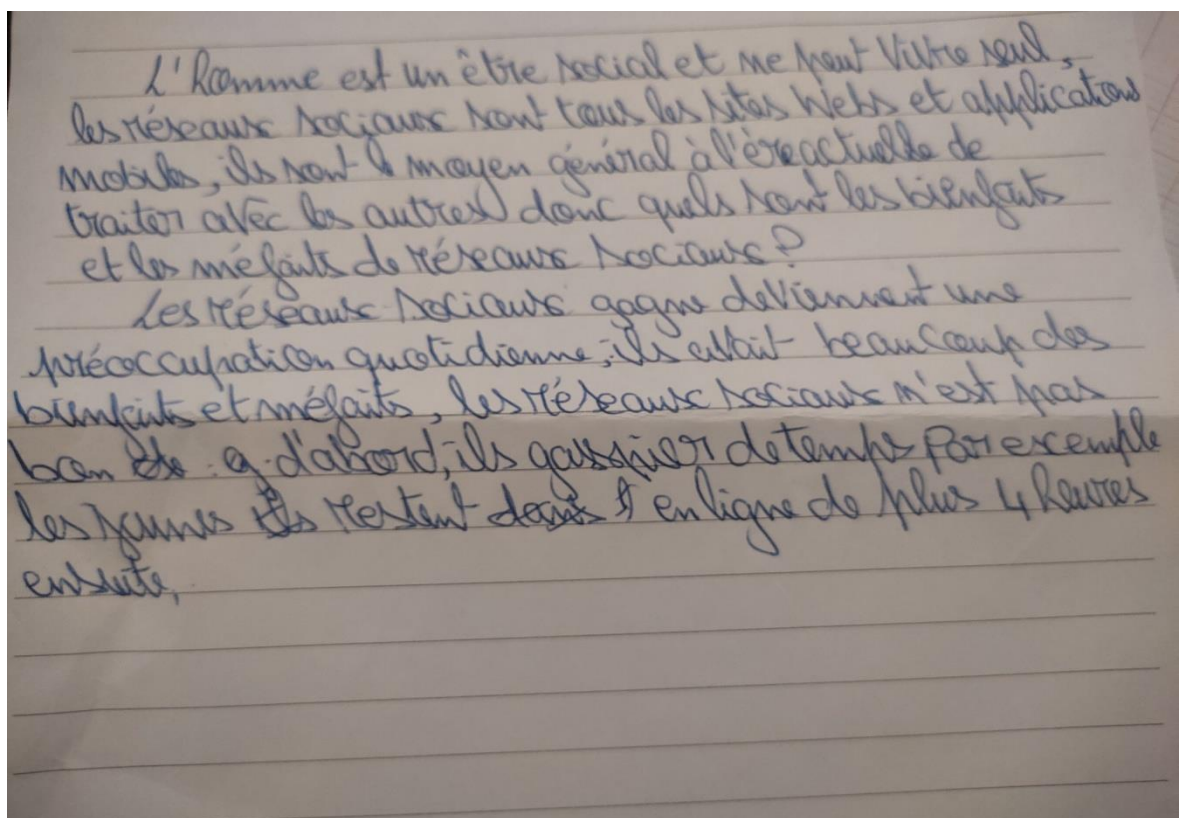 L'homme est un être social et ne peut vivre seul,
les réseaux sociaux sont tous les sites Webs et applications
mobiles, ils sont le moyen général à l'ère actuelle de
traiter avec les autres donc quels sont les bienfaits
et les méfaits de réseaux sociaux?
Les réseaux sociaux gagne deviennent une
préoccupation quotidienne, ils beaucoup des
bienfaits et méfaits, les réseaux sociaux n'est pas
bon d'abord, ils gasspier de temps par exemple
les jeunes restent en ligne de plus 4 heures
ensuite,